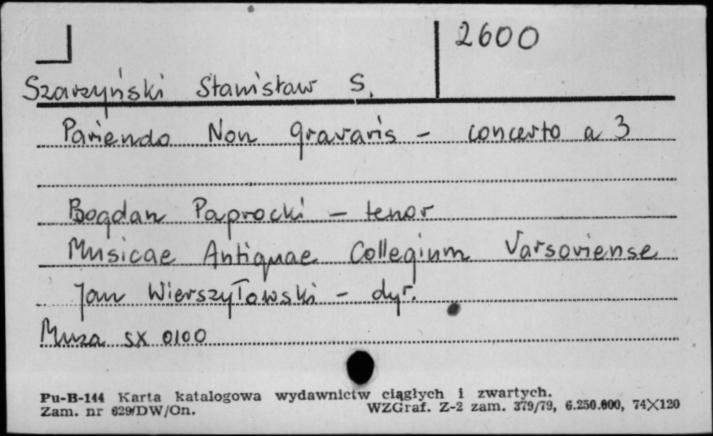 2600
Szarzyński Stanisław S.
Pariendo Non Gravaris - concerto a 3
Bogdan Paprocki - tenor
Musicae Antiquae Collegium Varsoviense
Jan Wierszyłowski - dyr.
Muza SX 0100
Pu-B-144 Karta katalogowa wydawnictw ciągłych i zwartych.
Zam. nr 629/DW/On. WZGraf. Z-2 zam. 379/79, 6.250.000, 74×120